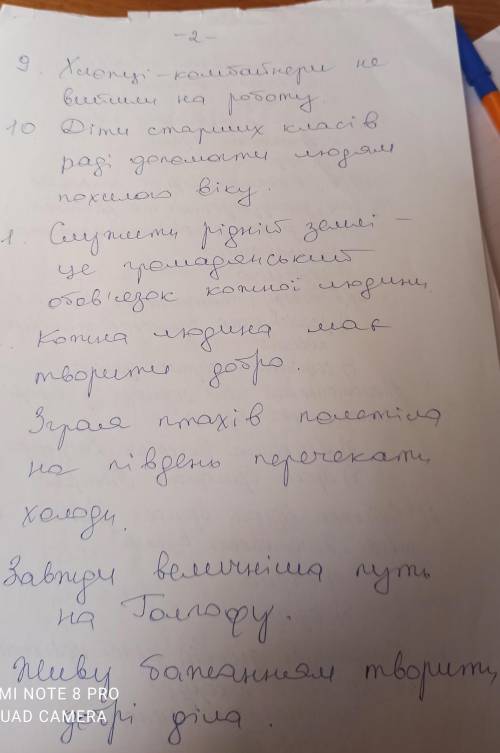 -2-
9. Хлопці-комбайнери не
вийшли на роботу.
10 Діти старших класів
раді допомогти людям
похилого віку.
1. Служити рідній землі -
це громадянський
обов'язок кожної людини
Кожна людина має
творити добро.
Зграя птахів полетіла
на південь перечекати
холоди.
Завжди величніша путь
на Голгофу.
Живу бажанням творити
добрі діла.
MI NOTE 8 PRO
QUAD CAMERA